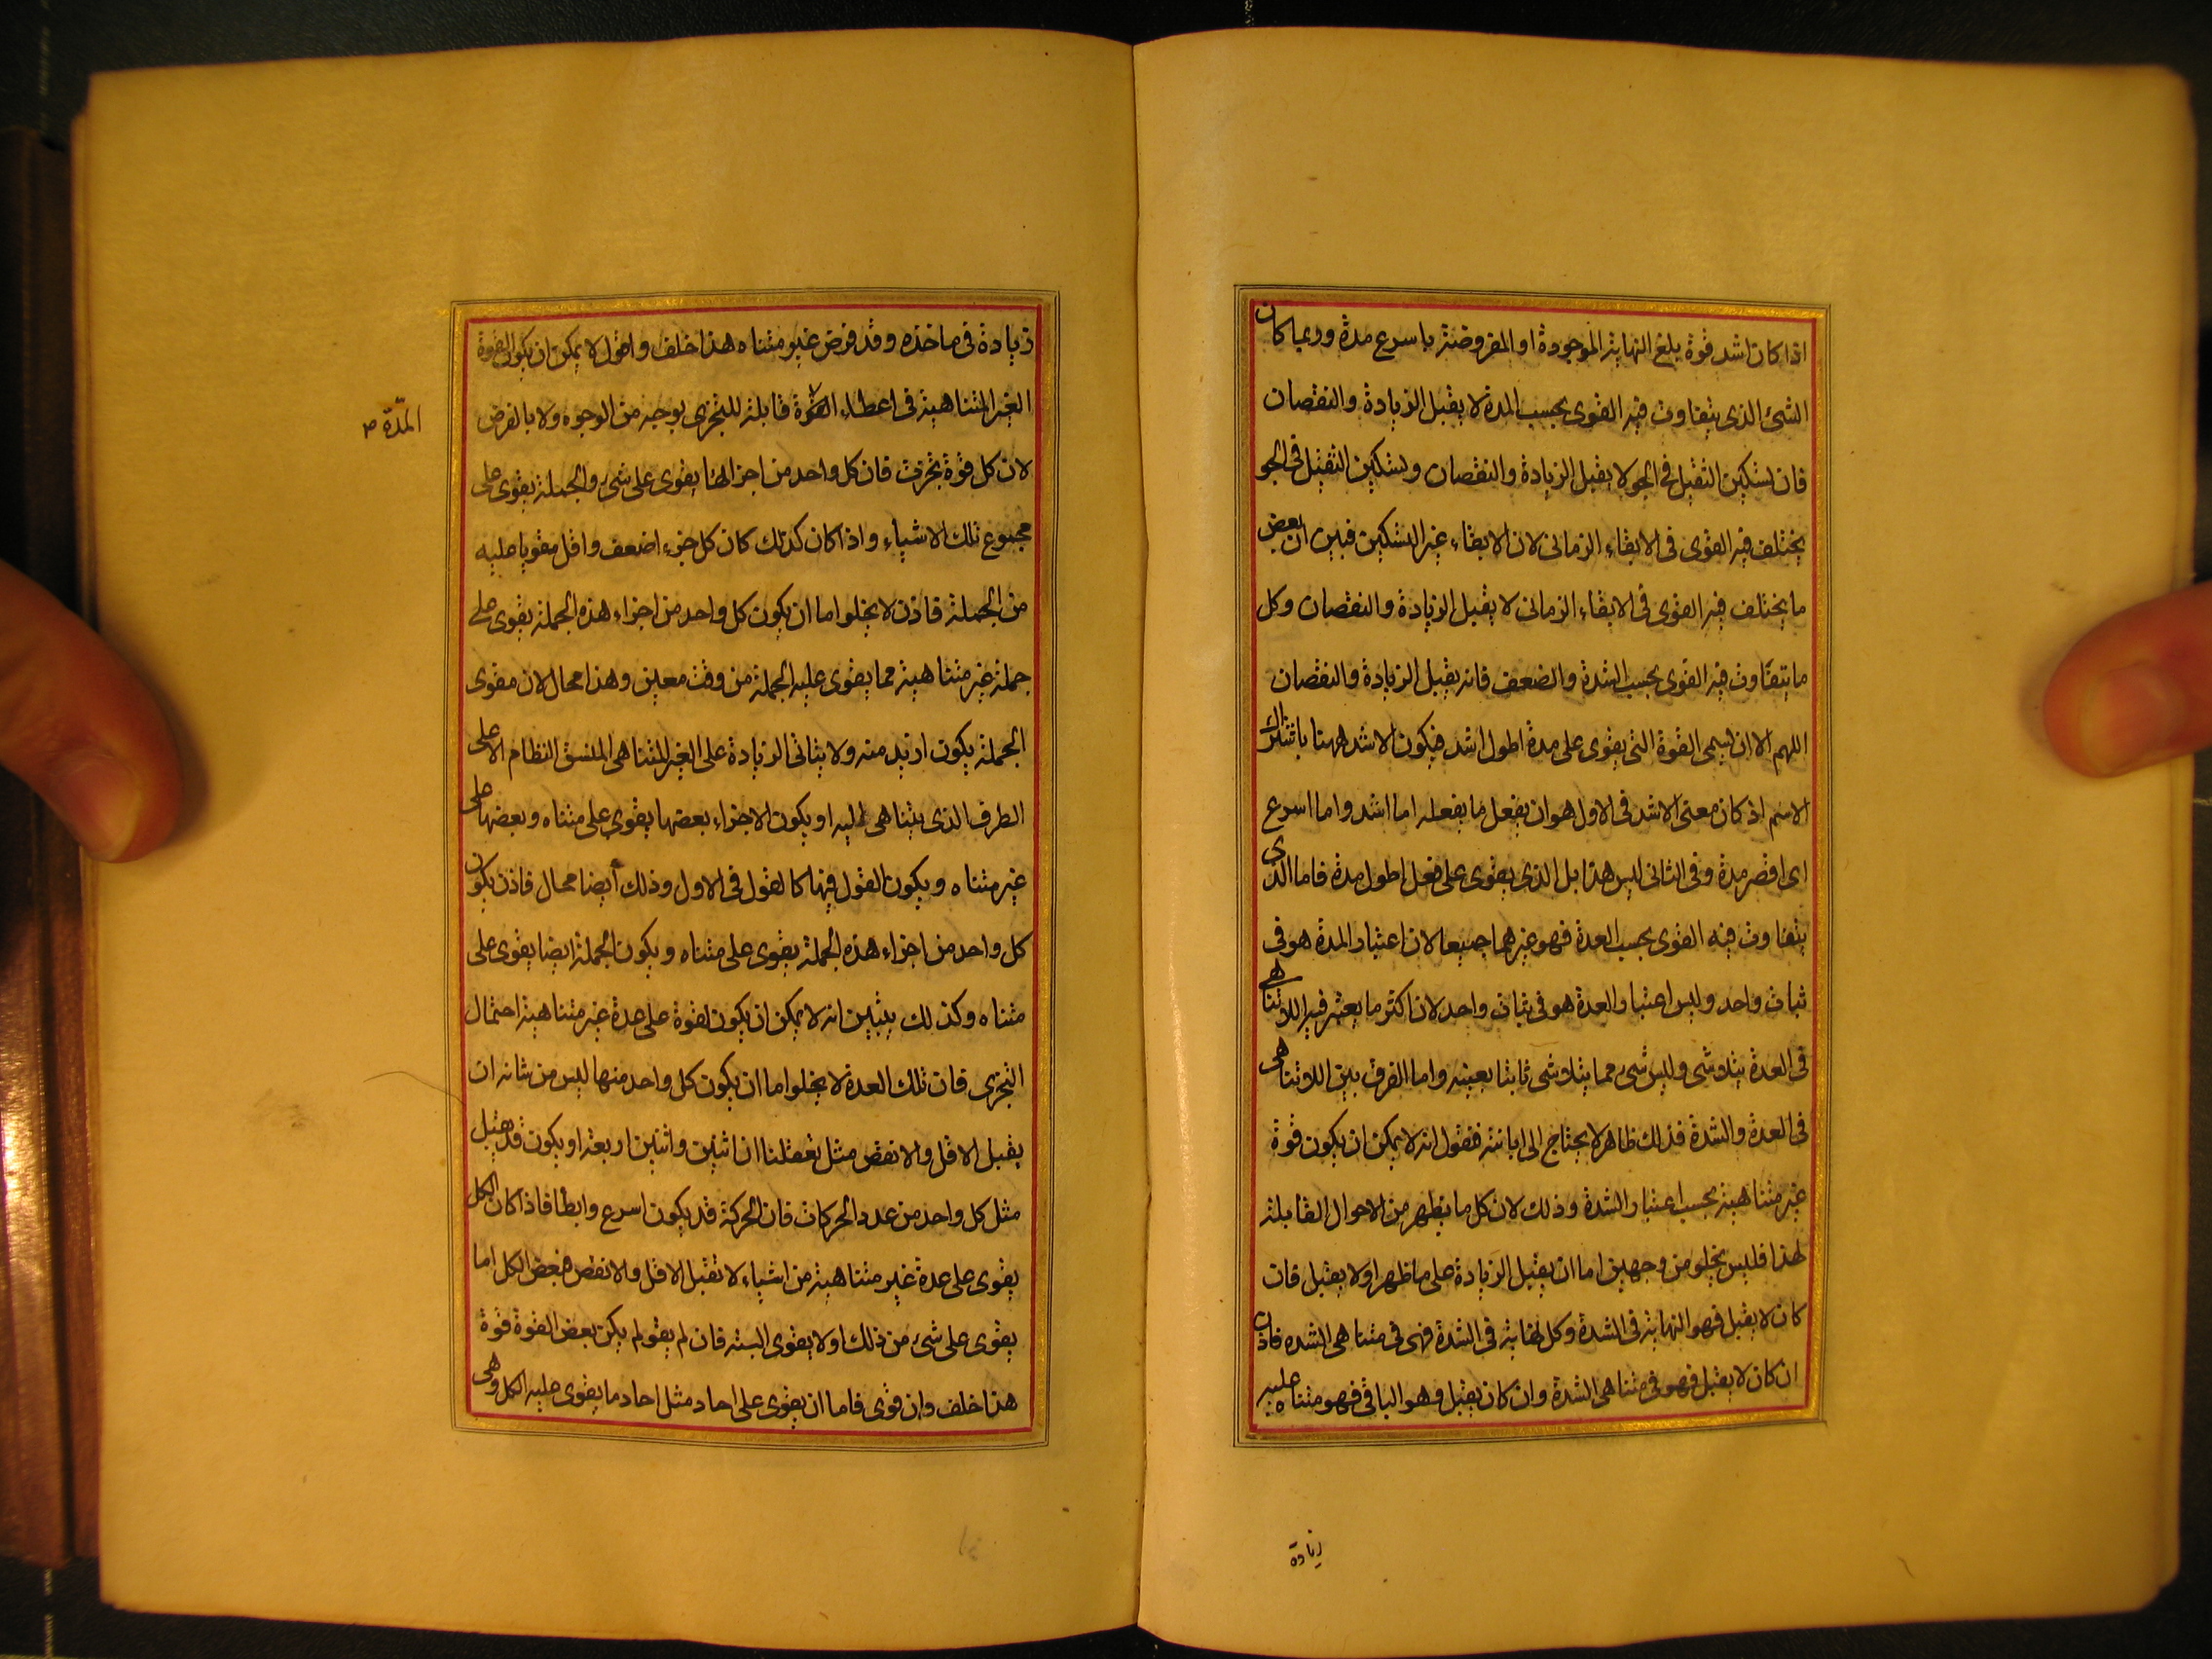 اذا كان اشد قوة يبلغ النهاية الموجودة او المفروضة باسرع مدة وربما كان
الشئ الذى يتفاوت فيه القوى بحسب المدة لا يقبل الزيادة والنقصان
فان تسكين الثقيل فى الجو لا يقبل الزيادة والنقصان وتسكين الثقيل فى الجو
يختلف فيه القوى فى الابقاء الزمانى لان الابقاء غير التسكين فبين ان بعض
ما يختلف فيه القوى فى الابقاء الزمانى لا يقبل الزيادة والنقصان وكل
ما يتفاوت فيه القوى بحسب الشدة والضعف فانه يقبل الزيادة والنقصان
اللهم الا ان يسمى القوة التى يقوى على مدة اطول اشد فيكون الاشد ههنا باشتراك
الاسم اذ كان معنى الاشد فى الاول هو ان يفعل ما يفعله اما اشد واما اسرع
اى اقصر مدة وفى الثانى ليس هذا بل الذى يقوى على فعل اطول مدة فاما الذى
يتفاوت فيه القوى بحسب العدة فهو غيرهما جميعا لان اعتبار المدة هو فى
ثبات واحد وليس اعتبار العدة هو فى ثبات واحد لان اكثر ما يعتبر فيه اللاتناهى
فى العدة يتلاشى وليس شئ مما يتلاشى ثابتا بعينه واما الفرق بين اللاتناهى
فى العدة والشدة فذلك ظاهر لا يحتاج الى ابانته فنقول انه لا يمكن ان يكون قوة
غير متناهية بحسب اعتبار الشدة وذلك لان كل ما يظهر من الاحوال القابلة
لهذا فليس يخلو من وجهين اما ان يقبل الزيادة على ما ظهر او لا يقبل فان
كان لا يقبل فهو النهاية فى الشدة وكل نهاية فى الشدة فهى فى متناهى الشده فاذن
ان كان لا يقبل فهو فى متناهى الشدة وان كان يقبل وهو الباقى فهو متناه عليه
زيادة
زيادة فى ماخذه وقد فرض غير متناه هذا خلف واقول لا يمكن ان يكون القوة
الغير المتناهية فى اعطاء القوة قابلة للتجزى بوجه من الوجوه ولا بالفرض
المدّة ص
لان كل قوة تجزت فان كل واحد من اجزائها يقوى على شئ والجملة يقوى على
مجموع تلك الاشياء واذا كان كذلك كان كل جزء اضعف واقل مقويا عليه
من الجملة فاذن لا يخلوا اما ان يكون كل واحد من اجزاء هذه الجملة يقوى على
جملة غير متناهية مما يقوى عليه الجملة من وقت معين وهذا محال لان مقوى
الجملة يكون ازيد منه ولا يتاتى الزيادة على الغير المتناهى المتسق النظام الا على
الطرف الذى يتناهى اليه او يكون الاجزاء بعضها يقوى على متناه وبعضها على
غير متناه ويكون القول فيها كالقول فى الاول وذلك أيضا محال فاذن يكون
كل واحد من اجزاء هذه الجملة يقوى على متناه ويكون الجملة ايضا يقوى على
متناه وكذلك يتبين انه لا يمكن ان يكون لقوة على عدة غير متناهية احتمال
التجزى فان تلك العدة لا يخلوا اما ان يكون كل واحد منها ليس من شانه ان
يقبل الاقل والانقص مثل تعقلنا ان اثنين واثنين اربعه او يكون قد يقبل
مثل كل واحد من عدد الحركات فان الحركة قد يكون اسرع وابطأ فاذا كان الكل
يقوى على عدة غير متناهية من اشياء لا تقبل الاقل والانقص فبعض الكل اما
يقوى على شئ من ذلك او لا يقوى البته فان لم يقو لم يكن بعض القوة قوة
هذا خلف وان قوى فاما ان يقوى على احاد مثل احاد ما يقوى عليه الكل وهى